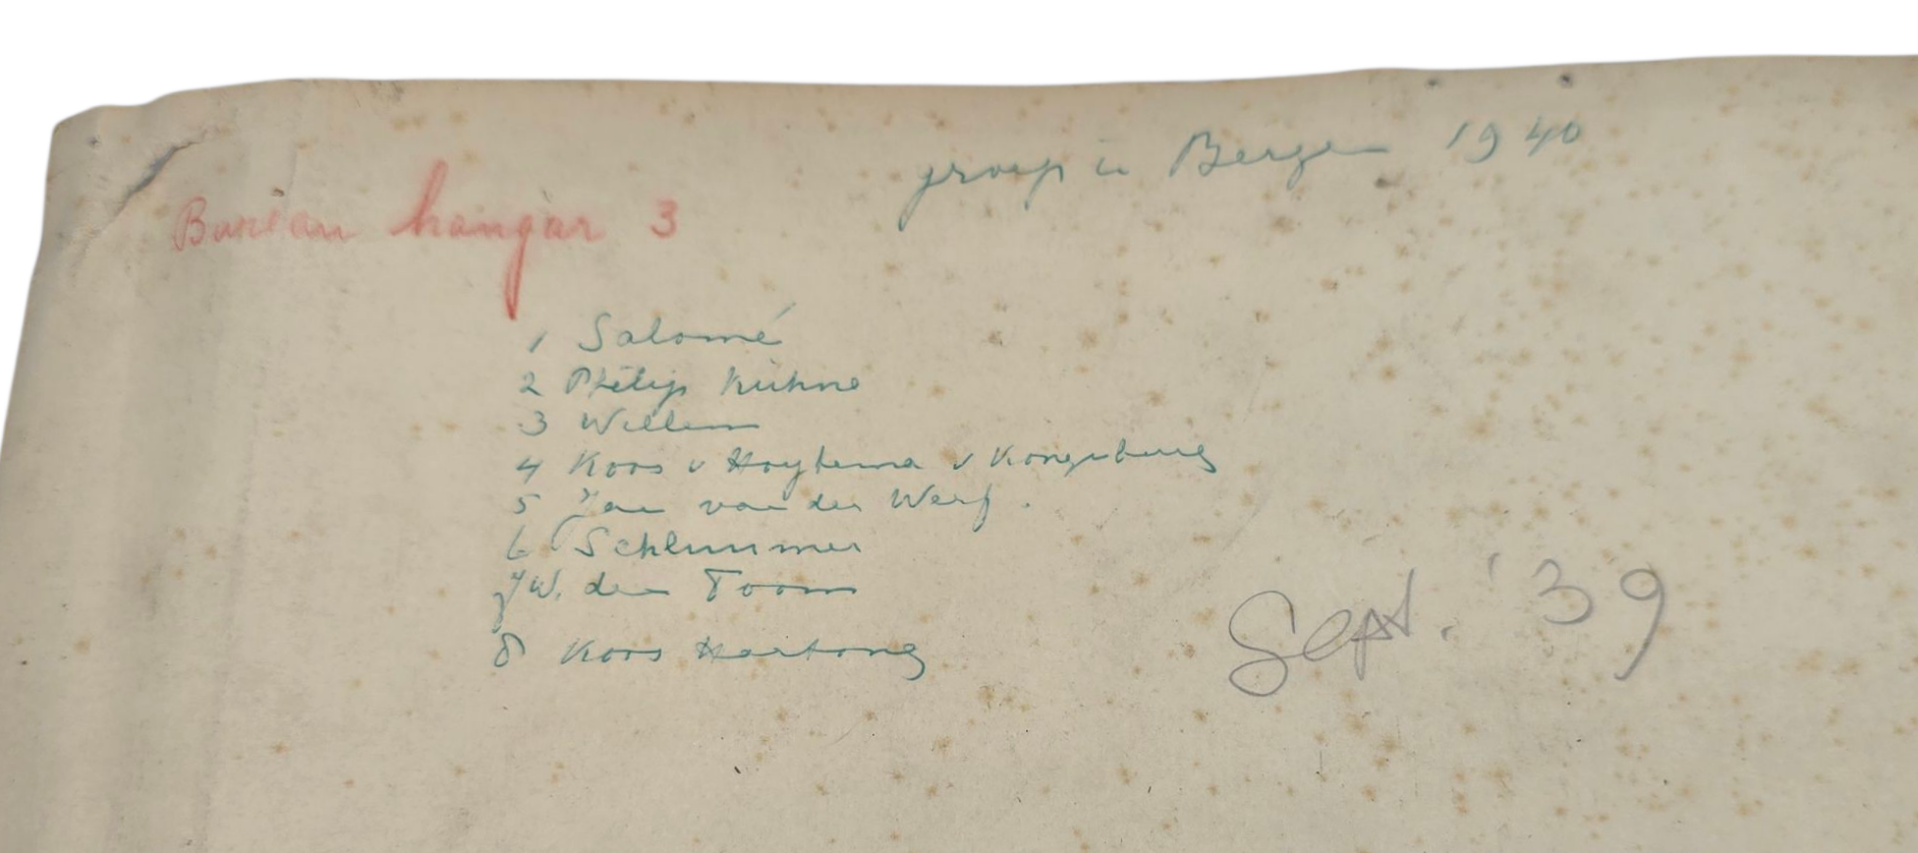 groep in Bergen 1940
Bureau hangar 3
1 Salomé
2 Philip Kühne
3 Willem
4 Koos v Hoytema v Kongsburg
5 Jan van der Werf.
6 Schlimmer
7 W. den Toom
8 Koos Hartong
Sept. '39